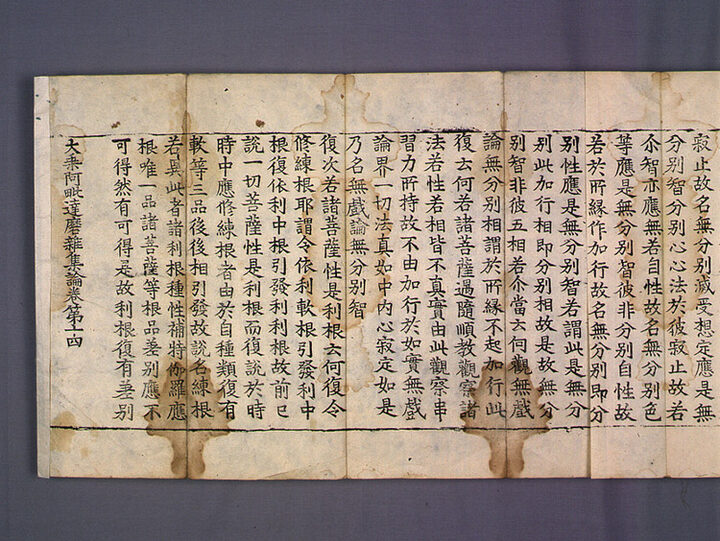 寂止故名無分別滅受想定應是無
分別智分別心心法於彼寂止故若
尒智亦應無若自性故名無分別色
等應是無分別智彼非分別自性故
若於所緣作加行故名無分別即分
別性應是無分別智若謂此是無分
別此加行相即分別相故是故無分
別智非彼五相若尒當云何觀無戲
論無分別相謂於所緣不起加行此
復云何若諸菩薩遇隨順教觀察諸
法若性若相皆不真實由此觀察串
習力所持故不由加行於如實無戲
論界一切法真如中內心寂定如是
乃名無戲論無分別智
復次若諸菩薩性是利根云何復令
修練根耶謂令依利軟根引發利中
根復依利中根引發利利根故前已
說一切菩薩性是利根而復說於時
時中應修練根者由於自種類復有
軟等三品後後相引發故說名練根
若異此者諸利根種性補特伽羅應
根唯一品諸菩薩等根品差別應不
可得然有可得是故利根復有差別
大乘阿毗達磨雜集論卷第十四